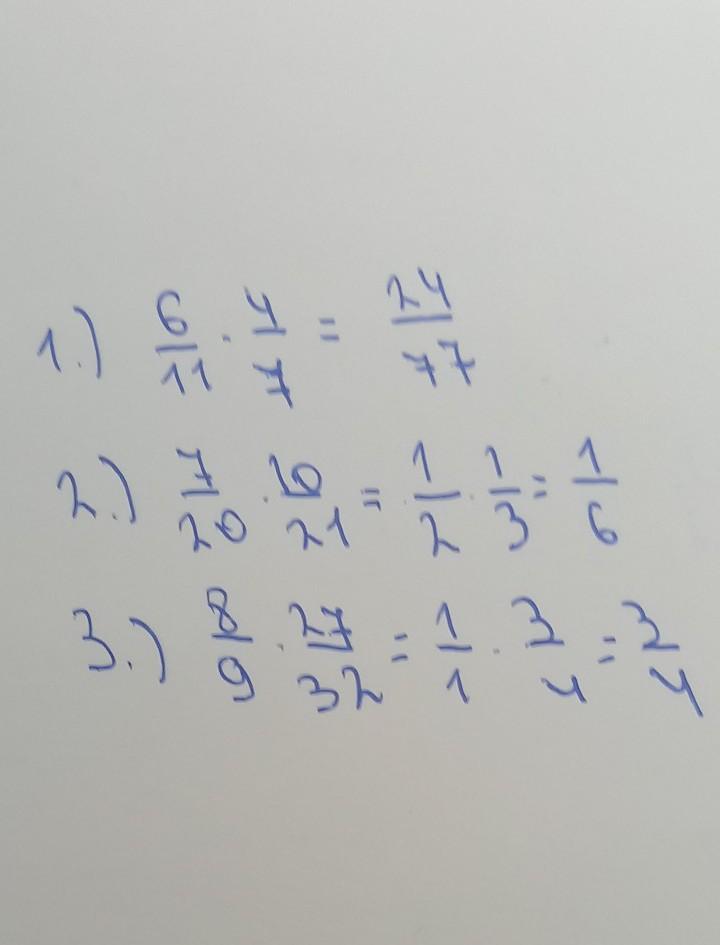 1.) 6/11 · 4/7 = 24/77
2.) 7/20 · 10/21 = 1/2 · 1/3 = 1/6
3.) 8/9 · 27/32 = 1/1 · 3/4 = 3/4